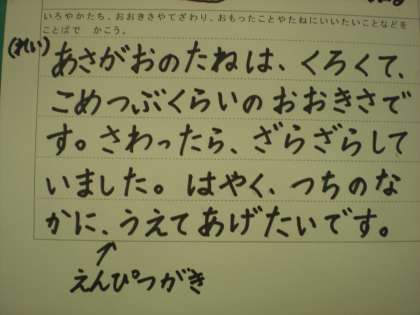 いろやかたち、おおきさやてざわり、おもったことやたねにいいたいことなどを
ことばで　かこう。
(れい)
あさがおのたねは、くろくて、
こめつぶくらいのおおきさで
す。さわったら、ざらざらして
いました。はやく、つちのな
かに、うえてあげたいです。
えんぴつがき